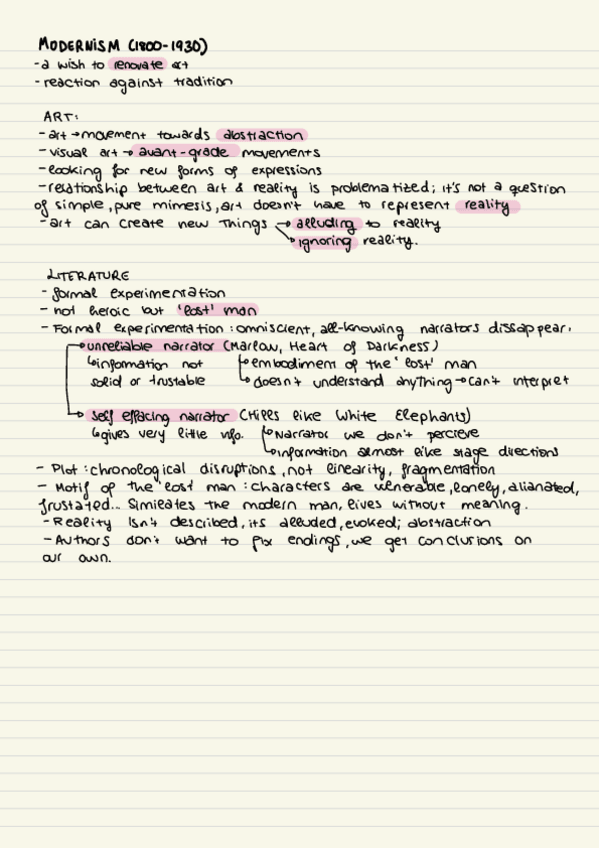 MODERNISM (1800-1930)
- a wish to renovate art
- reaction against tradition
ART:
- art → movement towards abstraction
- visual art → avant-grade movements
- looking for new forms of expressions
- relationship between art & reality is problematized; it's not a question
of simple, pure mimesis, art doesn't have to represent reality
- art can create new things → alluding to reality
→ ignoring reality.
LITERATURE
- formal experimentation
- not heroic but 'lost' man
- Formal experimentation: omniscient, all-knowing narrators dissappear.
→ unreliable narrator (Marlow, Heart of Darkness)
↳ information not ↳ embodiment of the 'lost' man
solid or trustable ↳ doesn't understand anything → can't interpret
→ self effacing narrator (Hills like White Elephants)
↳ gives very little info. ↳ Narrator we don't percieve
↳ information almost like stage directions
- Plot: chronological disruptions, not linearity, fragmentation
- Motif of the 'lost man: characters are vulnerable, lonely, alianated,
frustated... Simileates the modern man, lives without meaning.
- Reality isn't described, its alluded, evoked; abstraction
- Authors don't want to fix endings, we get conclusions on
our own.